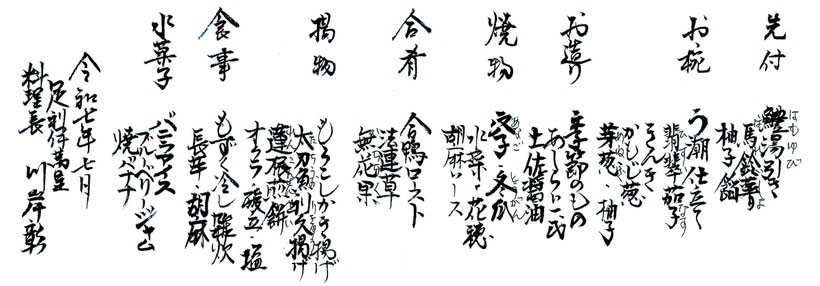 先付
鱧湯引き
はもゆび
馬鈴薯
柚子餡
お椀
うしお仕立て
翡翠茄子
かもじ葱
芽葱、柚子
お造り
季節のもの
あしらい一式
土佐醤油
焼物
穴子・冬瓜
あなご とうがん
水菜・花穂
胡麻ソース
合肴
合鴨ロースト
法連草
無花果
揚物
もろこしかき揚げ
太刀魚利久揚げ
蓮根煎餅
オクラ 酸立・塩
食事
もずく冷し雑炊
長芋・胡麻
水菓子
バニラアイス
ブルーベリージャム
焼バナナ
令和七年七月
足利伊萬里
料理長 川岸彰